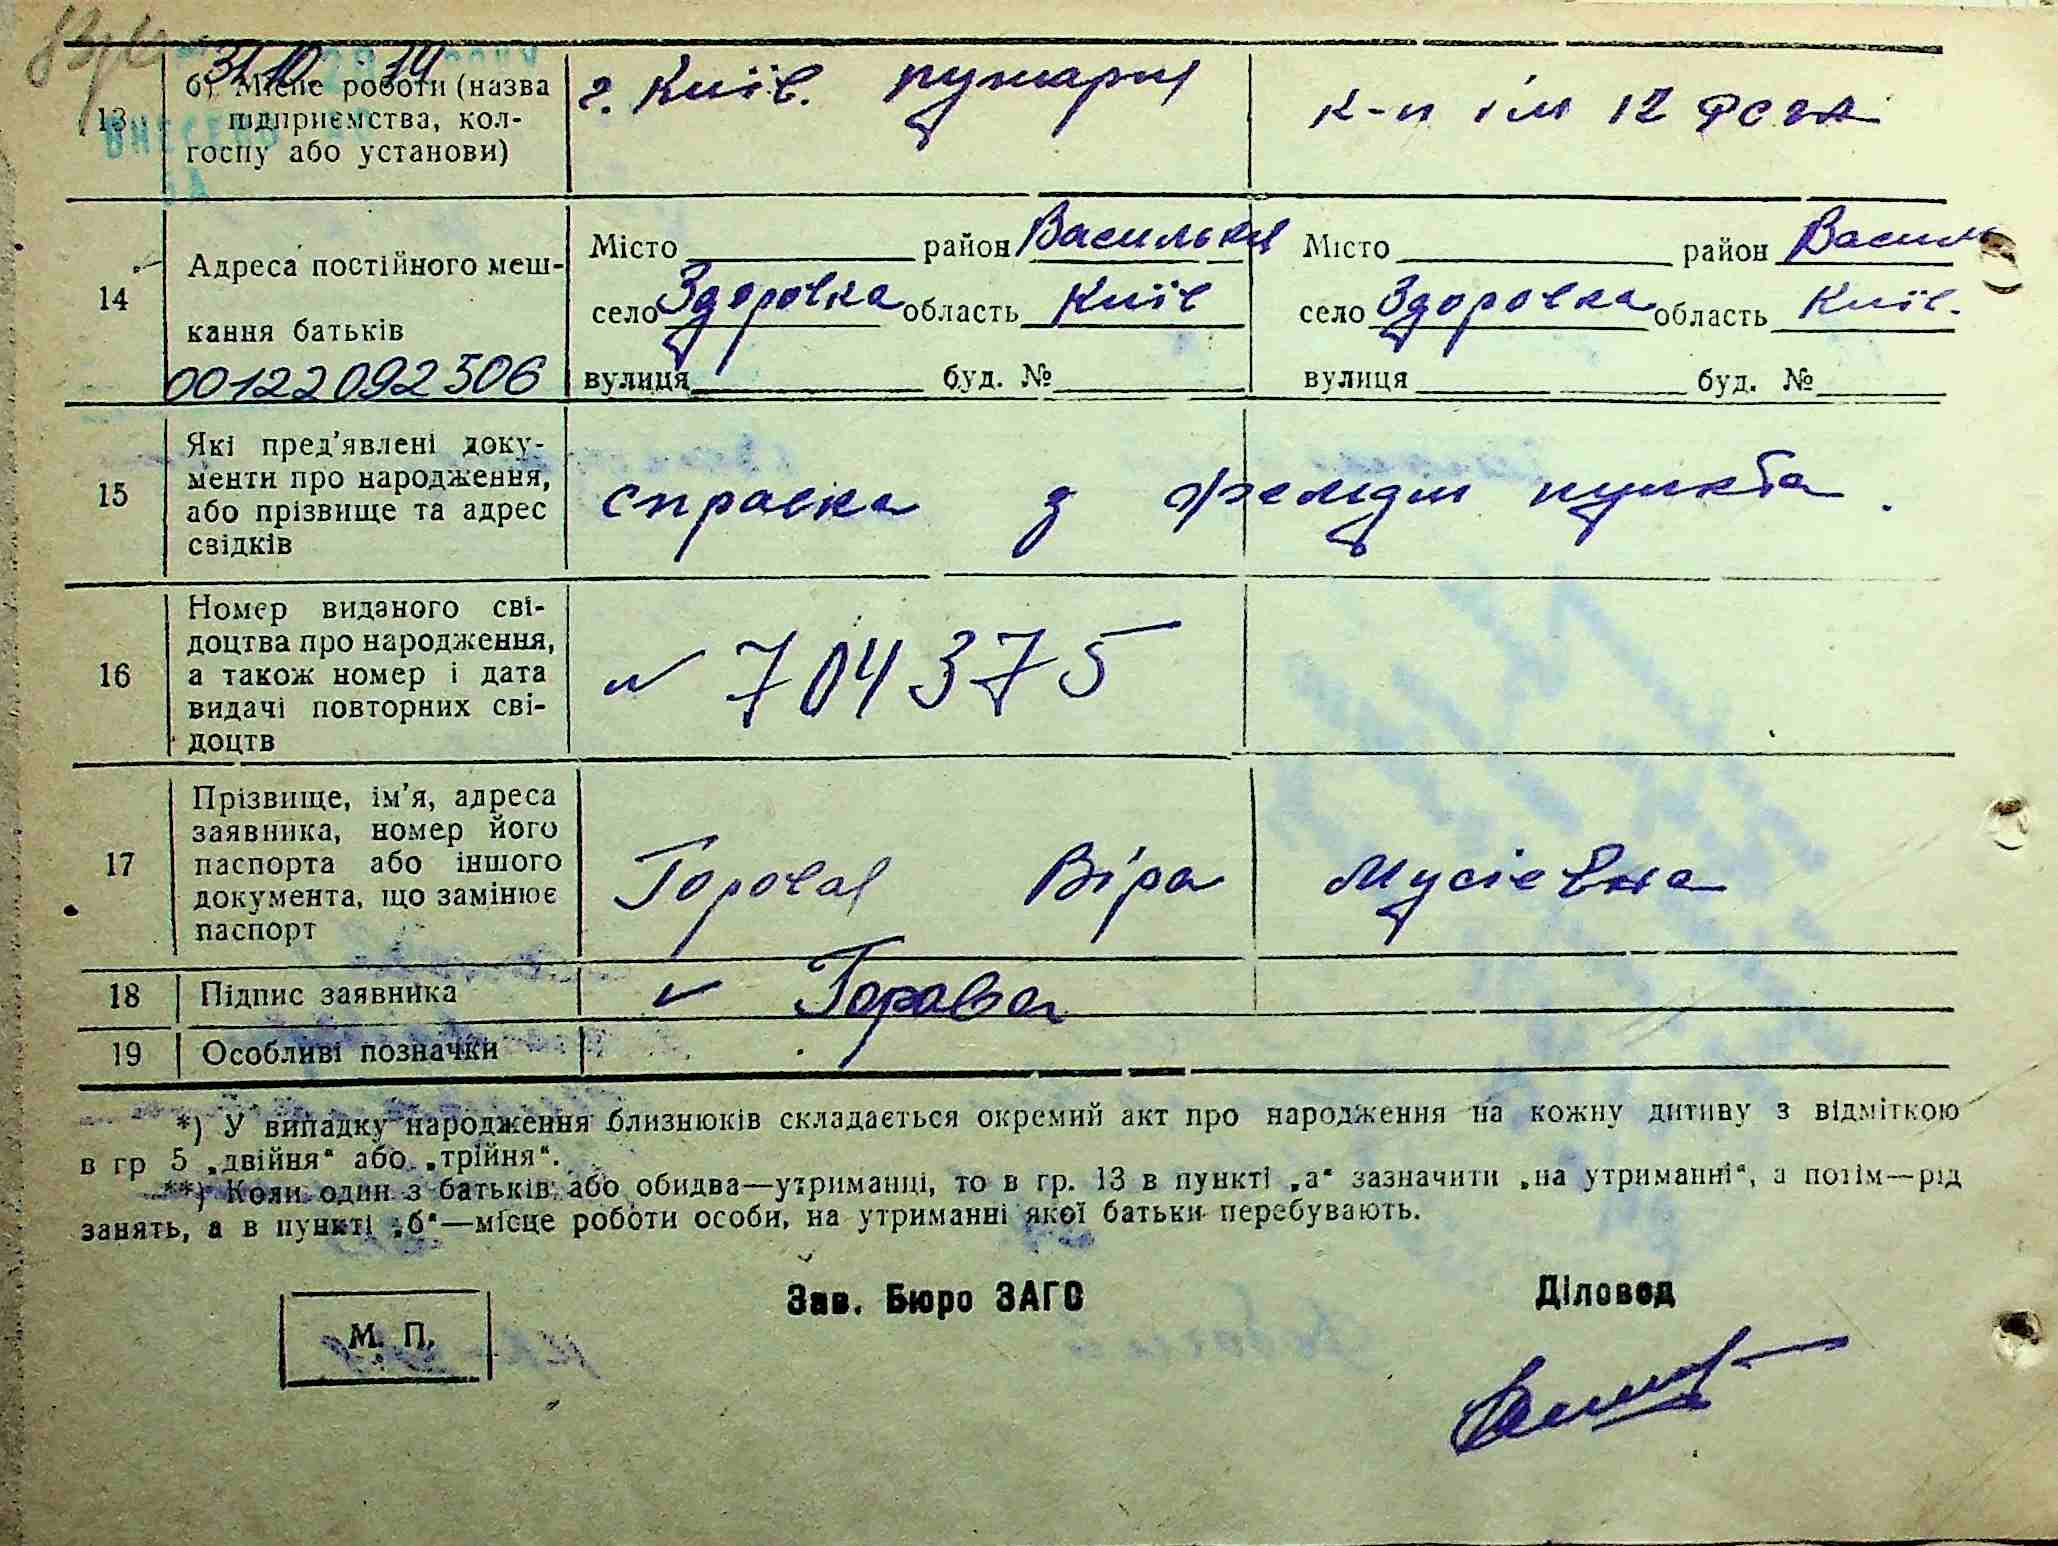 31 10 14
13 б) Місце роботи (назва підприємства, колгоспу або установи) г. Київ. пужарн к-п ім 12
14 Адреса постійного мешкання батьків
Місто район Васильків Місто район Васильк
село Здоровка область Київ село Здоровка область Київ.
00122092506 вулиця буд. № вулиця буд. №
15 Які пред'явлені документи про народження, або прізвище та адрес свідків
справка з фельдш пункта.
16 Номер виданого свідоцтва про народження, а також номер і дата видачі повторних свідоцтв
№ 704375
17 Прізвище, ім'я, адреса заявника, номер його паспорта або іншого документа, що замінює паспорт
Горовая Віра Мусієвна
18 Підпис заявника Горова
19 Особливі позначки
*) У випадку народження близнюків складається окремий акт про народження на кожну дитину з відміткою
в гр 5 „двійня“ або „трійня“.
**) Коли один з батьків або обидва—утриманці, то в гр. 13 в пункті „а“ зазначити „на утриманні“, а потім—рід
занять, а в пункті „б“—місце роботи особи, на утриманні якої батьки перебувають.
Зав. Бюро ЗАГС Діловод
М. П.